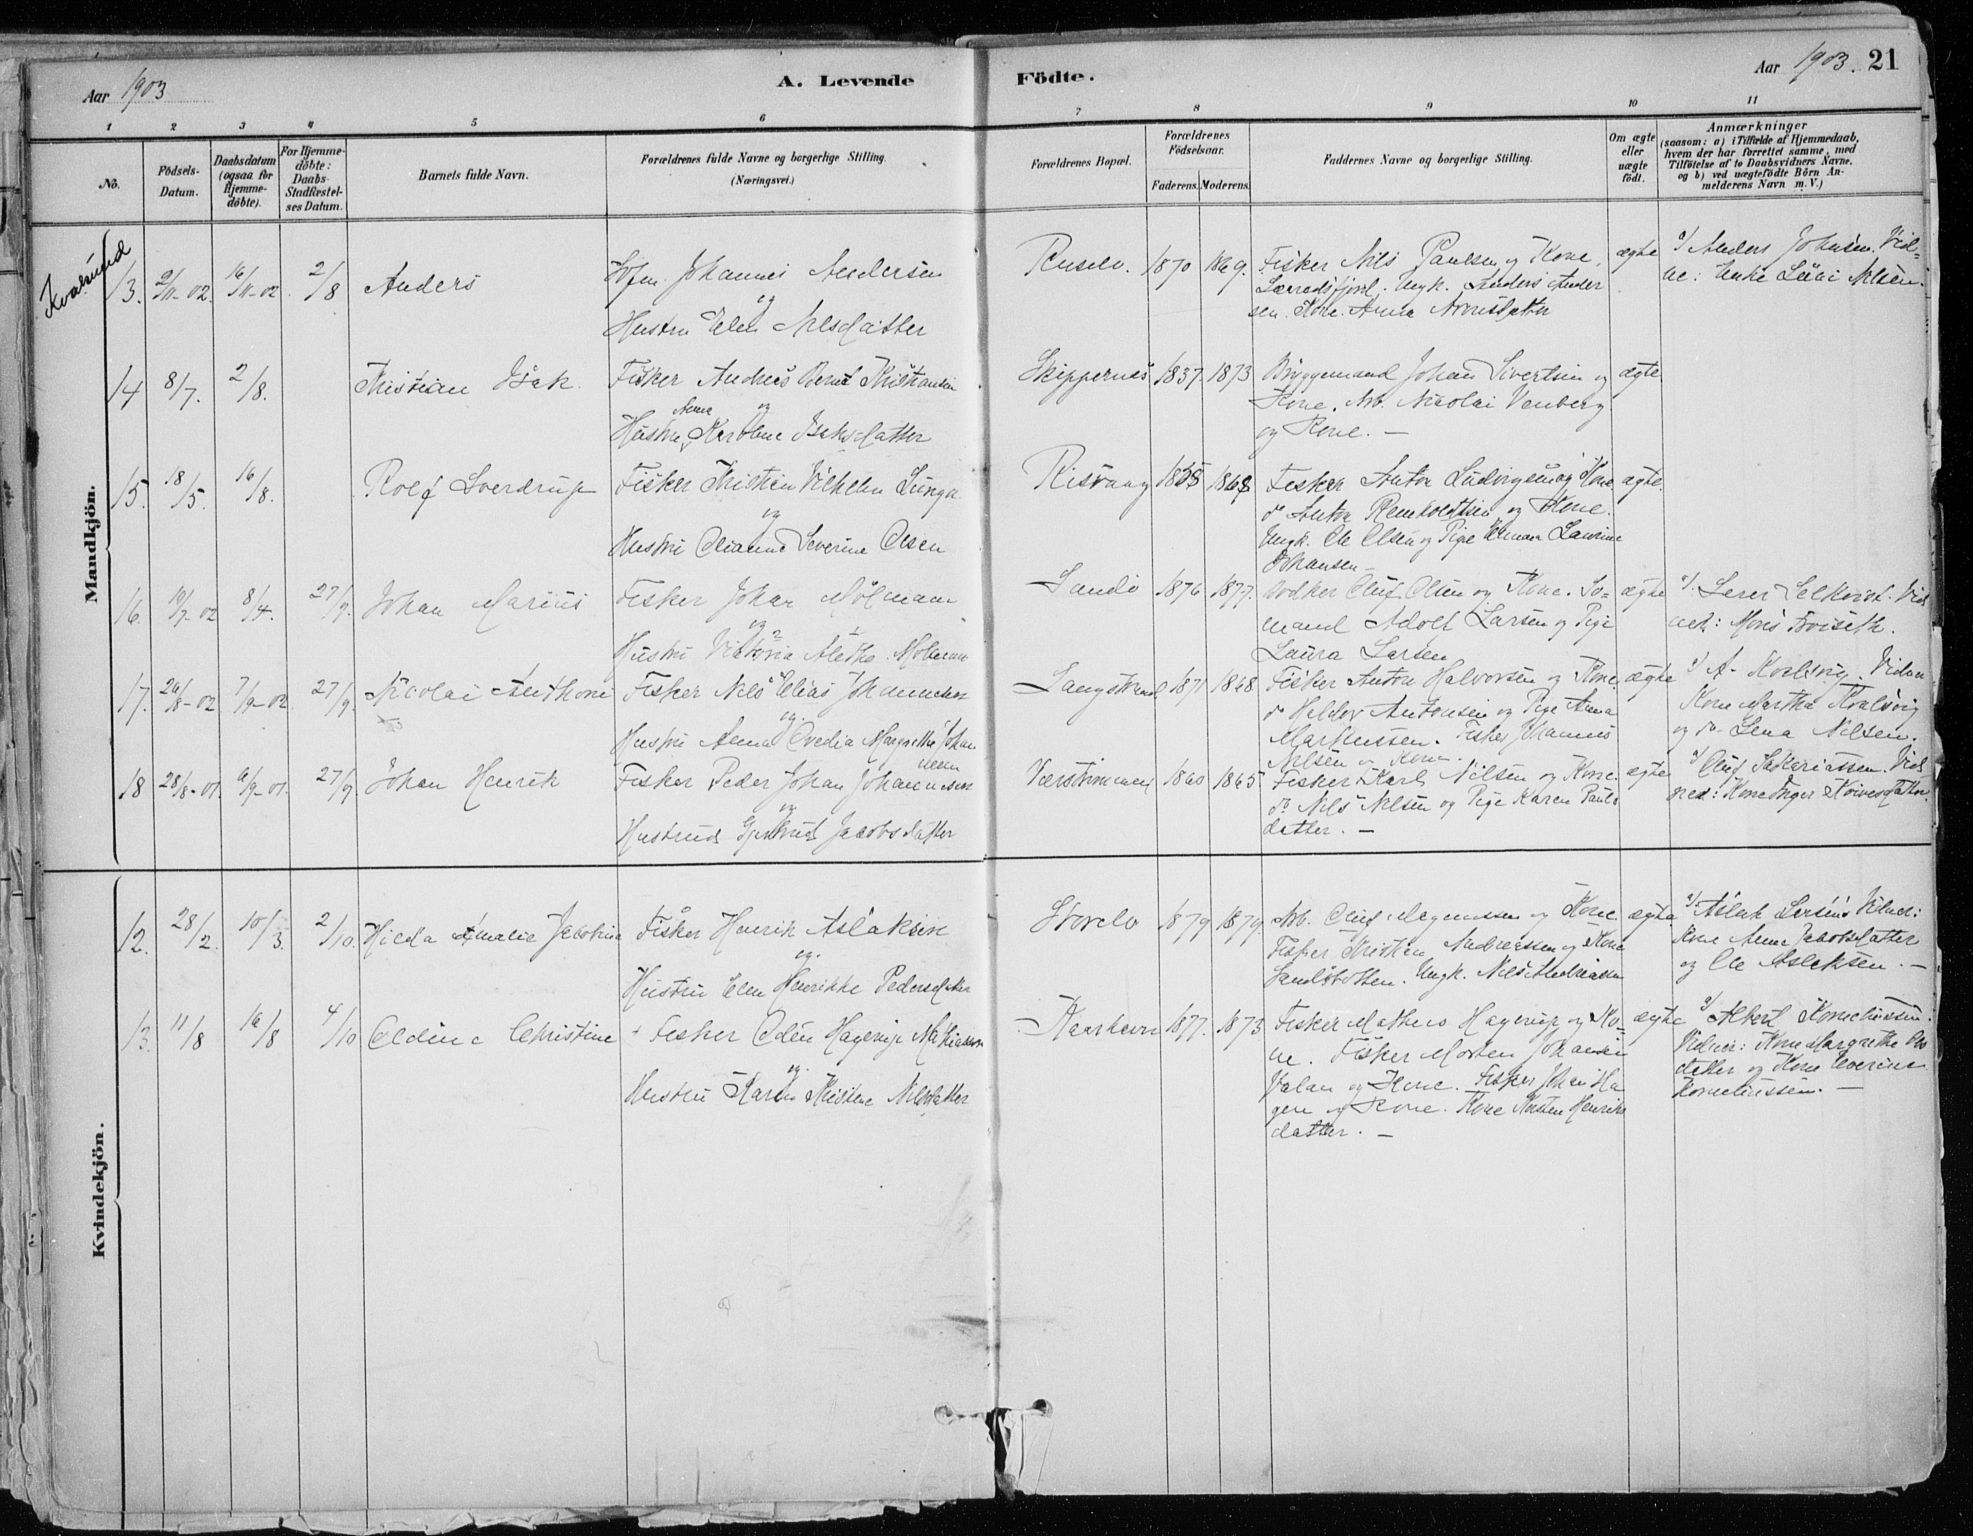 Aar 1903
A. Levende
Födte.
Aar 1903. 21
1 2 3 4 5 6 7 8 9 10 11
No.
Födsels-
Datum.
Daabsdatum
(ogsaa for
Hjemme-
döbte).
For Hjemme-
döbte:
Daabs-
Stadfestel-
ses Datum.
Barnets fulde Navn.
Forældrenes fulde Navne og borgerlige Stilling.
(Næringsvei.)
Forældrenes Bopæl.
Forældrenes
Födselsaar.
Faderens. Moderens.
Faddernes Navne og borgerlig Stilling.
Om ægte
eller
uægte
födt.
Anmærkninger
(saasom: a) i Tilfælde af Hjemmedaab,
hvem der har forrettet samme, med
Tilföielse af to Daabsvidners Navne.
og b) ved uægtefödte Börn An-
melderens Navn m. V.)
Kvalsund
Mandkjön.
13. 9/11-02. 16/11-02. 2/8 Anders
Johannes Andersen
og
Hustru Elen Nilsdatter
1870 1869. Fisker Nils Paulsen og Kone,
Ungk. Anders Ander
sen. Kone Anna
ægte
a/ Anders Johnsen. Vid-
ne: Enke Nilsen.
14 8/7. 2/8. Kristian Isak.
Fisker Andreas Bernt Kristiansen
og
Hustru Anna Karoline Isaksdatter
Skippernes 1837. 1873 Bryggemand Johan Sivertsen og
Kone. Arb. Nicolai Venberg
og Kone. —
ægte
15. 18/5. 16/8. Rolf Sverdrup
Fisker Kristian Vilhelm
og
Hustru Severine Olsen
Risvaag 1868 Fisker Anton Ludvigsen og Kone
do Anton Reinholdtsen og Kone.
Ungk. Ole Olsen og Pige Laurine
Johansen—
ægte.
16. 10/7-02 8/4. 27/9. Johan Marius
Fisker Johan
og
Hustru Viktoria
Sandö 1876 1877. Oluf Olsen og Kone. So-
mand Adolf Larsen og Pige
Laura Larsen
ægte
a/ Vid
ner: Mons
17. 26/8-02 7/9-02 27/9. Nicolai Anthone
Fisker Nils Elias Johannesen
og
Hustru Anna Ovedia Margrethe Johan
nesen
Langstrand 1871 1868 Fisker Anton Halvorsen og Kone
do Halder Antonsen og Pige Anna
Markussen. Fisker Johannes
Nilsen og Kone.
ægte
a/ A. Kvalsvig. Vidner
Kone Martha Kvalsvig
og do Lena Nilsen.
18 28/8-01. 6/9-01. 27/9 Johan Henrik
Fisker Peder Johan Johannesen
og
Hustrud Gjertrud Jacobsdatter
1860 1865 Fisker Karl Nilsen og Kone.
do Nils Nilsen og Pige Karen Pauls
datter. —
ægte
a/ Oluf Sakariassen. Vid
ner: Kone Inger
Kvindekjön.
12. 28/2. 10/3. 2/10. Hilda Amalie Jacobine
Fisker Henrik Aslaksen
og.
Hustru Elen Henrikke Pedersdatter
Storelv 1879 1879. Arb. Oluf Magnussen og Kone.
Fisker Kristian Andreassen og Kone
Ungk. Nils Andreassen
ægte.
a/ Aslak Larsen. Vidner:
Kone Anna Jacobsdatter
og Ole Aslaksen. —
13. 11/8 16/8 4/10 Oldine Christine
Fisker Odin Hagerup Mathiassen
og.
Hustru Karen Kristine Nilsdatter
1877. 1873 Fisker Mathias Hagerup og Ko-
ne. Fisker Morten Johansen
og Kone. Fisker Johan Ha
gen og Kone. Kone Kirsten Henriks
datter. —
ægte
a/ Albert Korneliussen.
Vidner: Kone Margrethe
datter og Kone Severine
Korneliussen. —